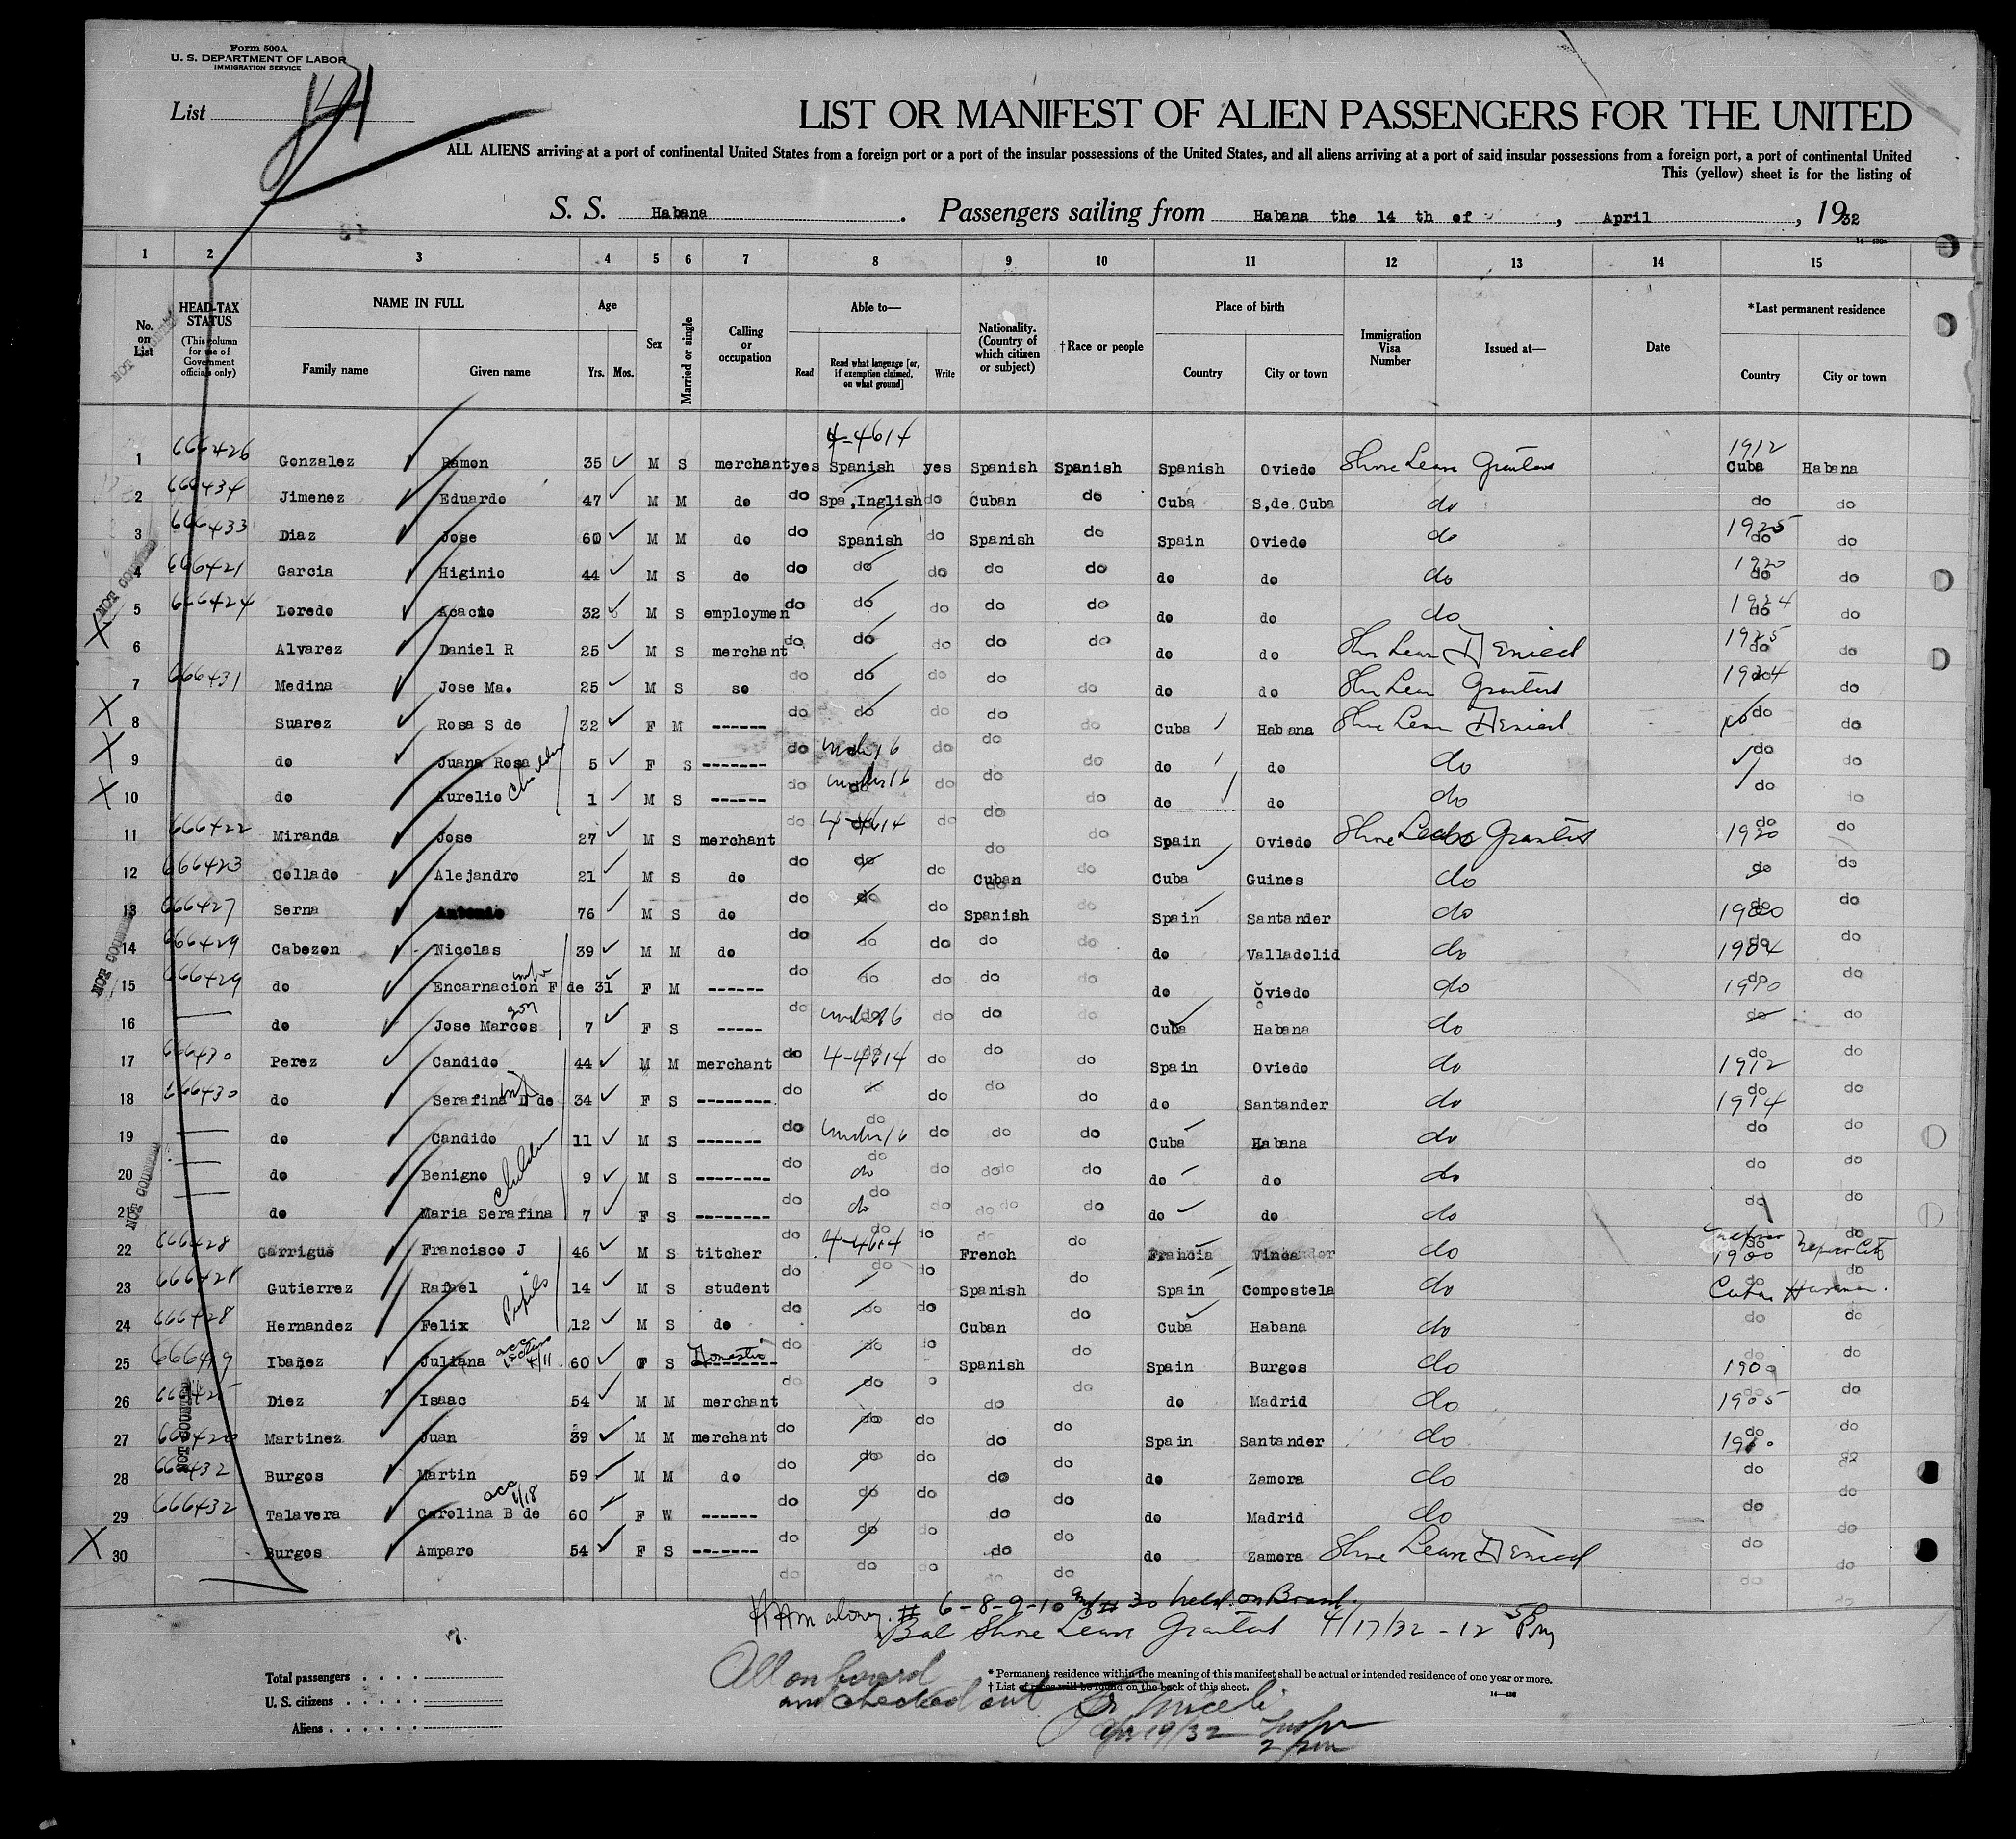 Form 500A
U. S. DEPARTMENT OF LABOR
IMMIGRATION SERVICE
List 141
LIST OR MANIFEST OF ALIEN PASSENGERS FOR THE UNITED
ALL ALIENS arriving at a port of continental United States from a foreign port or a port of the insular possessions of the United States, and all aliens arriving at a port of said insular possessions from a foreign port, a port of continental United
This (yellow) sheet is for the listing of
S. S. Habana . Passengers sailing from Habana the 14 th of , April , 1932
1 2 3 4 5 6 7 8 9 10 11 12 13 14 15
No. on List HEAD-TAX STATUS (This column for use of Government officials only) NAME IN FULL Family name Given name Age Yrs. Mos. Sex Married or single Calling or occupation Able to— Read Read what language [or, if exemption claimed, on what ground] Write Nationality. (Country of which citizen or subject) †Race or people Place of birth Country City or town Immigration Visa Number Issued at— Date *Last permanent residence Country City or town
4-4614 1912
1 666426 Gonzalez Ramon 35 M S merchant yes Spanish yes Spanish Spanish Spanish Oviedo Shore Leave Granted Cuba Habana
2 666434 Jimenez Eduardo 47 M M do do Spa,Inglish do Cuban do Cuba S,de Cuba do do do
3 666433 Diaz Jose 60 M M do do Spanish do Spanish do Spain Oviedo do 1925 do do
4 666421 Garcia Higinio 44 M S do do do do do do do do do 1920 do do
5 666424 Loredo Acacio 32 M S employmen do do do do do do do do 1924 do do
X 6 Alvarez Daniel R 25 M S merchant do do do do do do do Shore Leave Denied 1925 do do
7 666431 Medina Jose Ma. 25 M S so do do do do do do do Shore Leave Granted 1924 do do
X 8 Suarez Rosa S de 32 F M ------ do do do do do Cuba Habana Shore Leave Denied do do
X 9 do Juana Rosa children 5 F S ------- do under 16 do do do do do do do do
X 10 do Aurelio 1 M S ------ do under 16 do do do do do do do do
11 666422 Miranda Jose 27 M S merchant do 4-4614 do do do Spain Oviedo Shore Leave Granted 1920 do do
12 666423 Collado Alejandro 21 M S do do do do Cuban do Cuba Guines do do do
13 666427 Serna Antonio 76 M S do do do do Spanish do Spain Santander do do do
14 666429 Cabezon Nicolas 39 M M do do do do do do do Valladolid do 1904 do do
15 666429 do Encarnacion F de wife 31 F M ------ do do do do do do Oviedo do 1910 do do
16 — do Jose Marcos son 7 F S ----- do under 16 do do do Cuba Habana do do do
17 666430 Perez Candido 44 M M merchant do 4-4614 do do do Spain Oviedo do 1912 do do
18 666430 do Serafina D de wife 34 F S -------- do do do do do Santander do 1914 do do
19 — do Candido 11 M S ------- do under 16 do do do Cuba Habana do do do
20 — do Benigno children 9 M S -------- do do do do do do do do do do
21 — do Maria Serafina 7 F S -------- do do do do do do do do do do
22 666428 Garrigue Francisco J 46 M S titcher do 4-4614 do French Francia do 1900
23 666428 Gutierrez Rafael Pupils 14 M S student do do Spanish do Spain Compostela do Cuba Havana.
24 666428 Hernandez Felix 12 M S do do do do Cuban do Cuba Habana do do do
25 666419 Ibañez Juliana 60 F S Domestic do do do Spanish do Spain Burgos do 1900 do
26 666425 Diez Isaac 54 M M merchant do do do do do Madrid do 1905 do
27 666420 Martinez Juan 39 M M merchant do do do do do Spain Santander do do do
28 666432 Burgos Martin 59 M M do do do do do do Zamora do do do
29 666432 Talavera Carolina B de 60 F W ------ do do do do do do Madrid do do do
X 30 Burgos Amparo 54 F S ------- do do do do do do Zamora Shore Leave Denied do do
NOT COUNTED
# 6-8-9-10 and # 30 held on Board.
Bal Shore Leave Granted 4/17/32 - 12 50 Pm
All on board
and checked out
Apr 19/32
Total passengers . . . .
U. S. citizens . . . . .
Aliens . . . . . .
* Permanent residence within the meaning of this manifest shall be actual or intended residence of one year or more.
† List of races will be found on the back of this sheet.